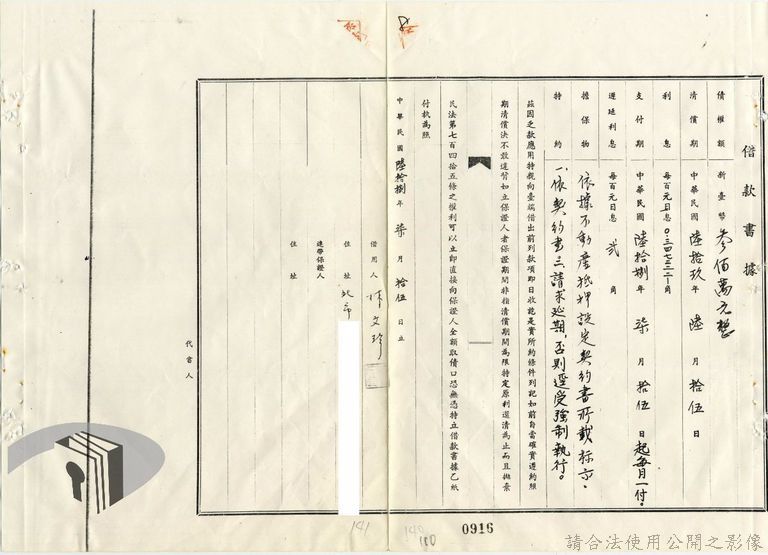 借款書據
債權額 新臺幣 叁佰萬元整
清償期 中華民國 陸拾玖 年 陸 月 拾伍 日
利息 每百元日息 0.三四七二二一 角
支付期 中華民國 陸拾捌 年 柒 月 拾伍 日起每月一付。
遲延利息 每百元日息 弐 角
擔保物 依據不動產抵押設定契約書所載标示。
特約 一、依契約書三請求延期,否則逕受強制執行。
茲因乏款應用特親向臺端借出前列款項即日收訖是實所約條件列記如前自當確實遵約照
期清償決不敢違背如立保證人者保證期間非指清償期間為限特定原利還清為止而且拋棄
民法第七百四拾五條之權利可以立即直接向保證人全額取償口恐無憑特立借款書據乙紙
付執為照
中華民國 陸拾捌 年 柒 月 拾伍 日立
借用人 林文珍
住址 北市
連帶保證人
住址
代書人
141
140
180
0916
請合法使用公開之影像